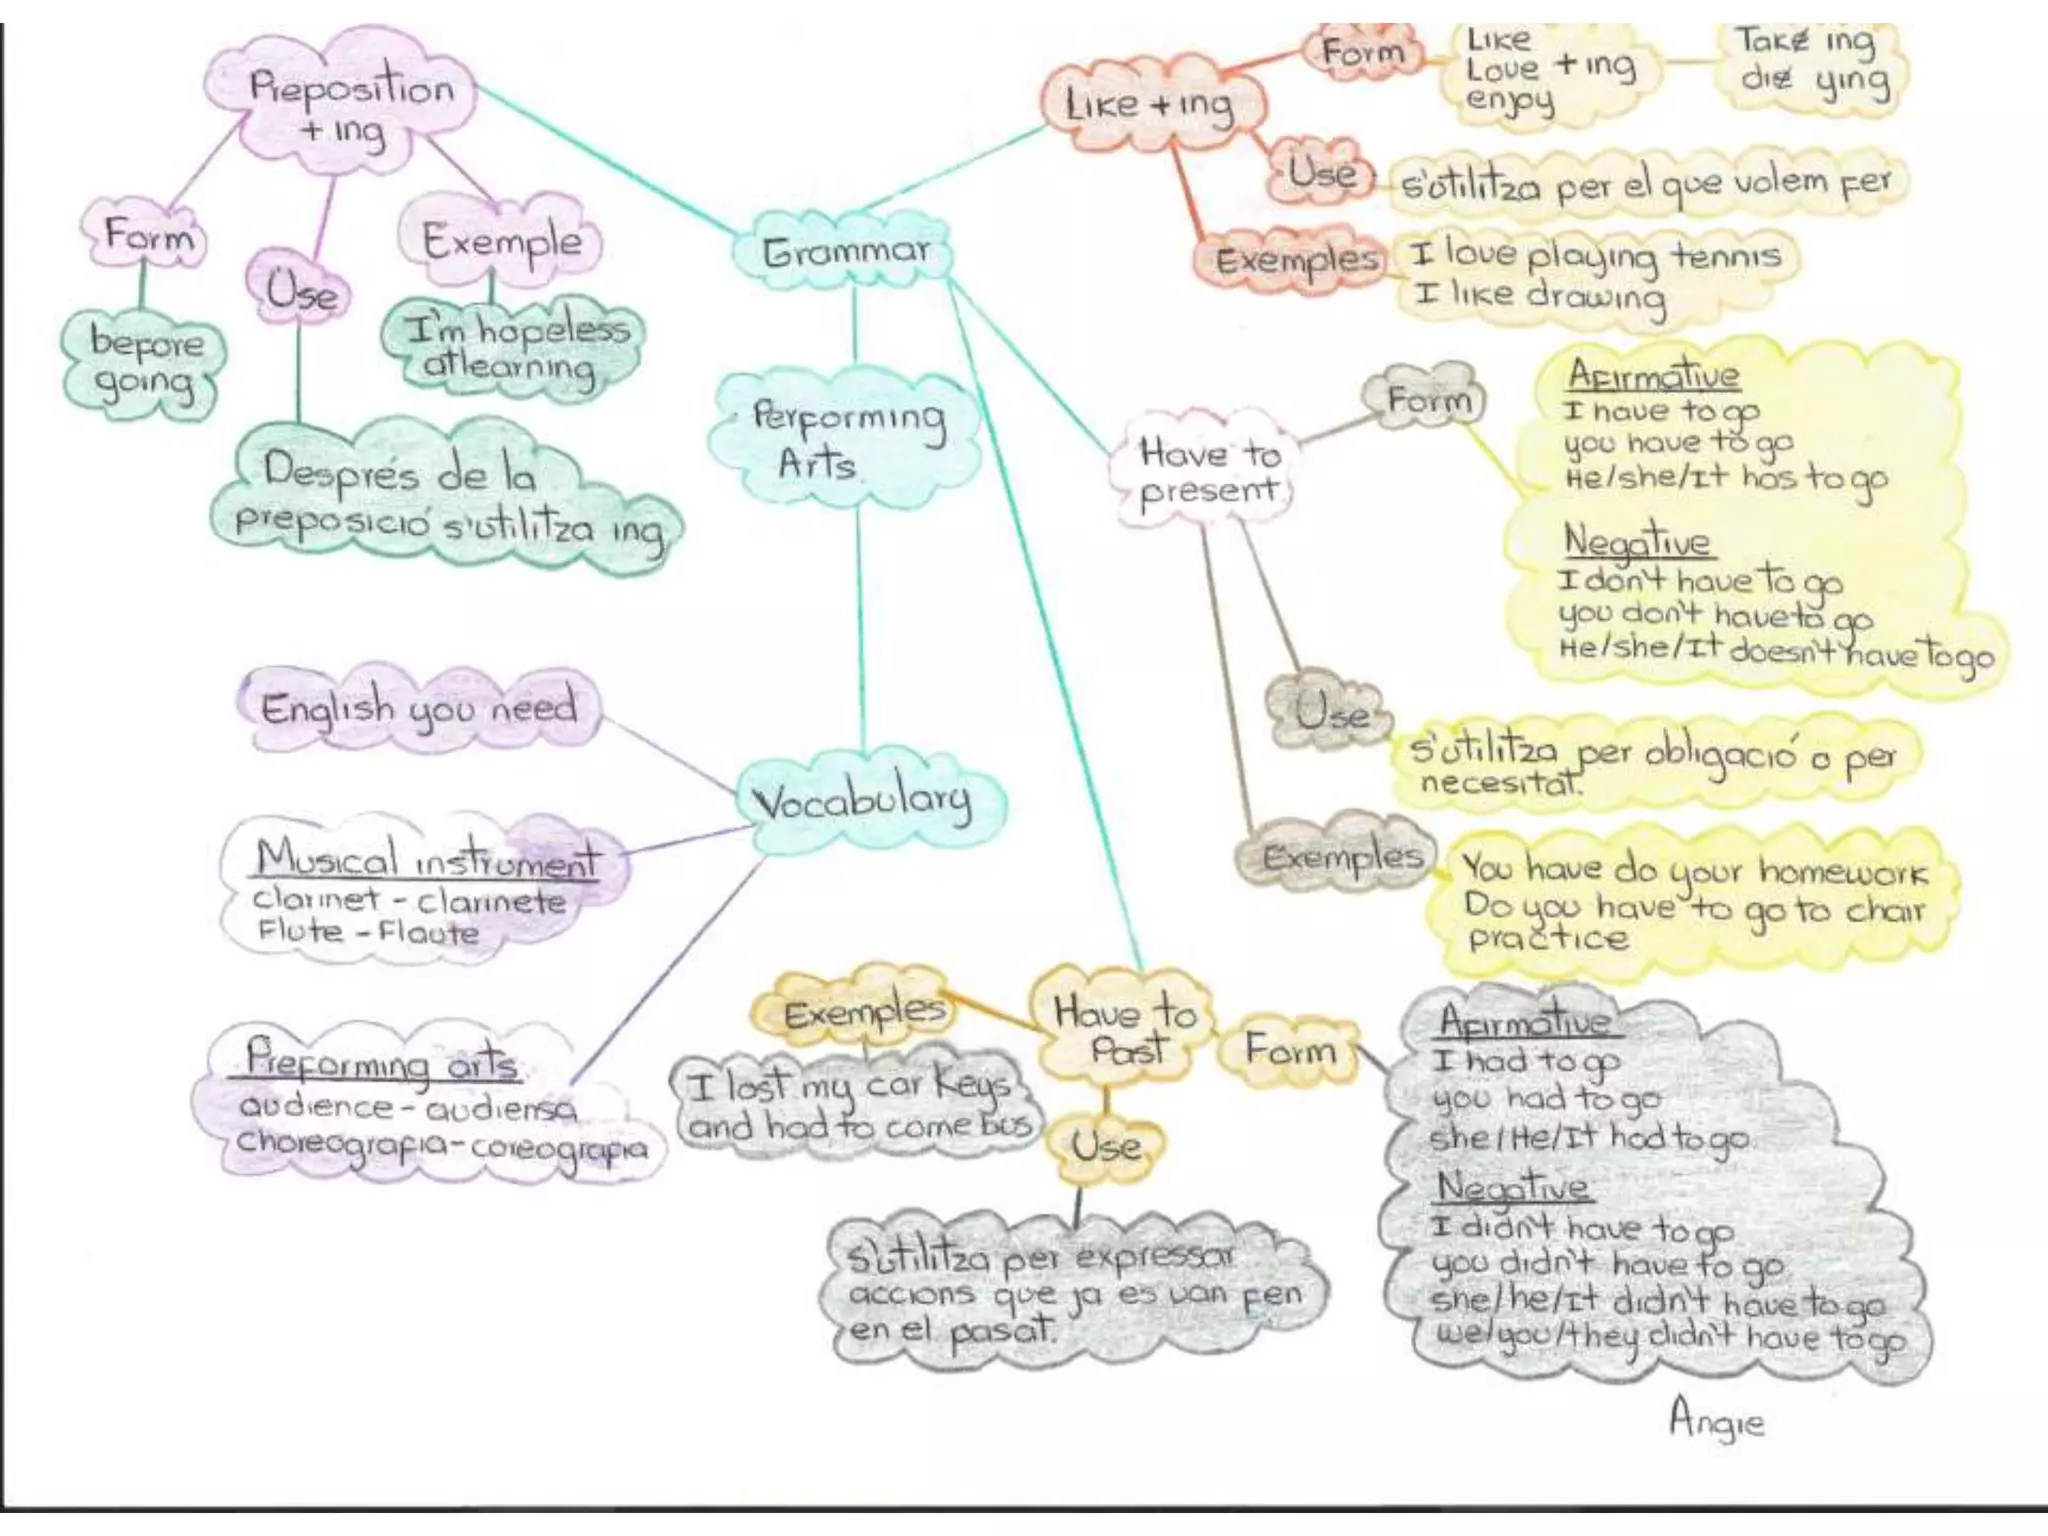 Preposition
+ ing
Form
Use
Exemple
before
going
I'm hopeless
at learning
Després de la
preposició s'utilitza ing
Grammar
Performing
Arts
Vocabulary
English you need
Musical instrument
clarinet - clarinete
Flute - Flaute
Preforming arts
audience - audiensa
choreografia - coreografia
Like + ing
Form
Like
Love + ing
enjoy
Take ing
die ying
Use
s'utilitza per el que volem fer
Exemples
I love playing tennis
I like drawing
Have to
present
Form
Afirmative
I have to go
you have to go
He/she/It has to go
Negative
I don't have to go
you don't have to go
He/she/It doesn't have to go
Use
s'utilitza per obligació o per
necesitat.
Exemples
You have do your homework
Do you have to go to chair
practice
Have to
Past
Exemples
I lost my car keys
and had to come bus
Use
s'utilitza per expressar
accions que ja es van fen
en el pasat.
Form
Afirmative
I had to go
you had to go
she/He/It had to go
Negative
I didn't have to go
you didn't have to go
she/he/It didn't have to go
we/you/they didn't have to go
Angie